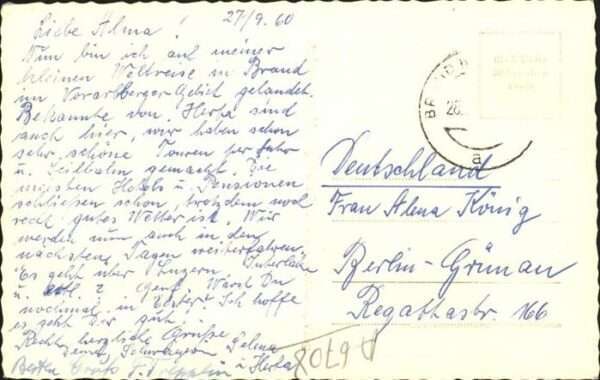 27/9.60
Liebe Alma!
Nun bin ich auf meiner
kleinen Weltreise in Brand
im Vorarlberger-Gebiet gelandet.
Bekannte von Herta sind
auch hier, wir haben schon
sehr schöne Touren per Fahr
u. Seilbahn gemacht. Die
meisten Hotels u. Pensionen
schliesen schon, trotzdem noch
recht gutes Wetter ist. Wir
werden nun auch in den
nächsten Tagen weiterfahren.
Es geht über Luzern, Interlaken
u. evtl. Genf. Warst Du
nochmal in Ich hoffe
es geht Dir gut.
Recht herzliche Grüße
Deine Schwägerin Selma
Besten Gruß u. Herta
BRAND
26.
Deutschland
Frau Alma König
Berlin-Grünau
Regattastr. 166